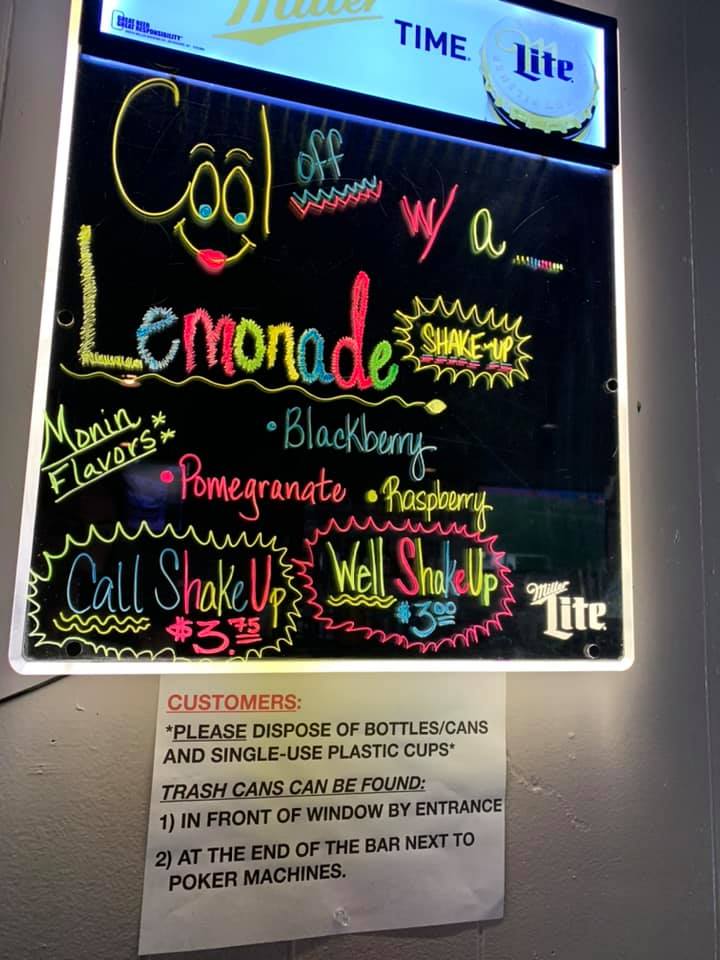 GREAT BEER
GREAT RESPONSIBILITY
Miller
TIME
Miller
Lite
Cool off w/ a
Lemonade SHAKE-UP
Monin
Flavors**
• Blackberry
• Pomegranate • Raspberry
Call ShakeUp
$3.75
Well ShakeUp
$3.00
Miller
Lite
CUSTOMERS:
*PLEASE DISPOSE OF BOTTLES/CANS
AND SINGLE-USE PLASTIC CUPS*
TRASH CANS CAN BE FOUND:
1) IN FRONT OF WINDOW BY ENTRANCE
2) AT THE END OF THE BAR NEXT TO
POKER MACHINES.